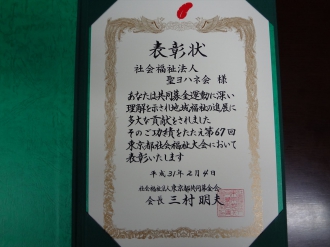 表彰状
社会福祉法人
聖ヨハネ会 様
あなたは共同募金運動に深い
理解を示され地域福祉の進展に
多大な貢献をされました
そのご功績をたたえ第67回
東京都社会福祉大会において
表彰いたします
平成31年2月4日
社会福祉法人東京都共同募金会
会長 三村明夫